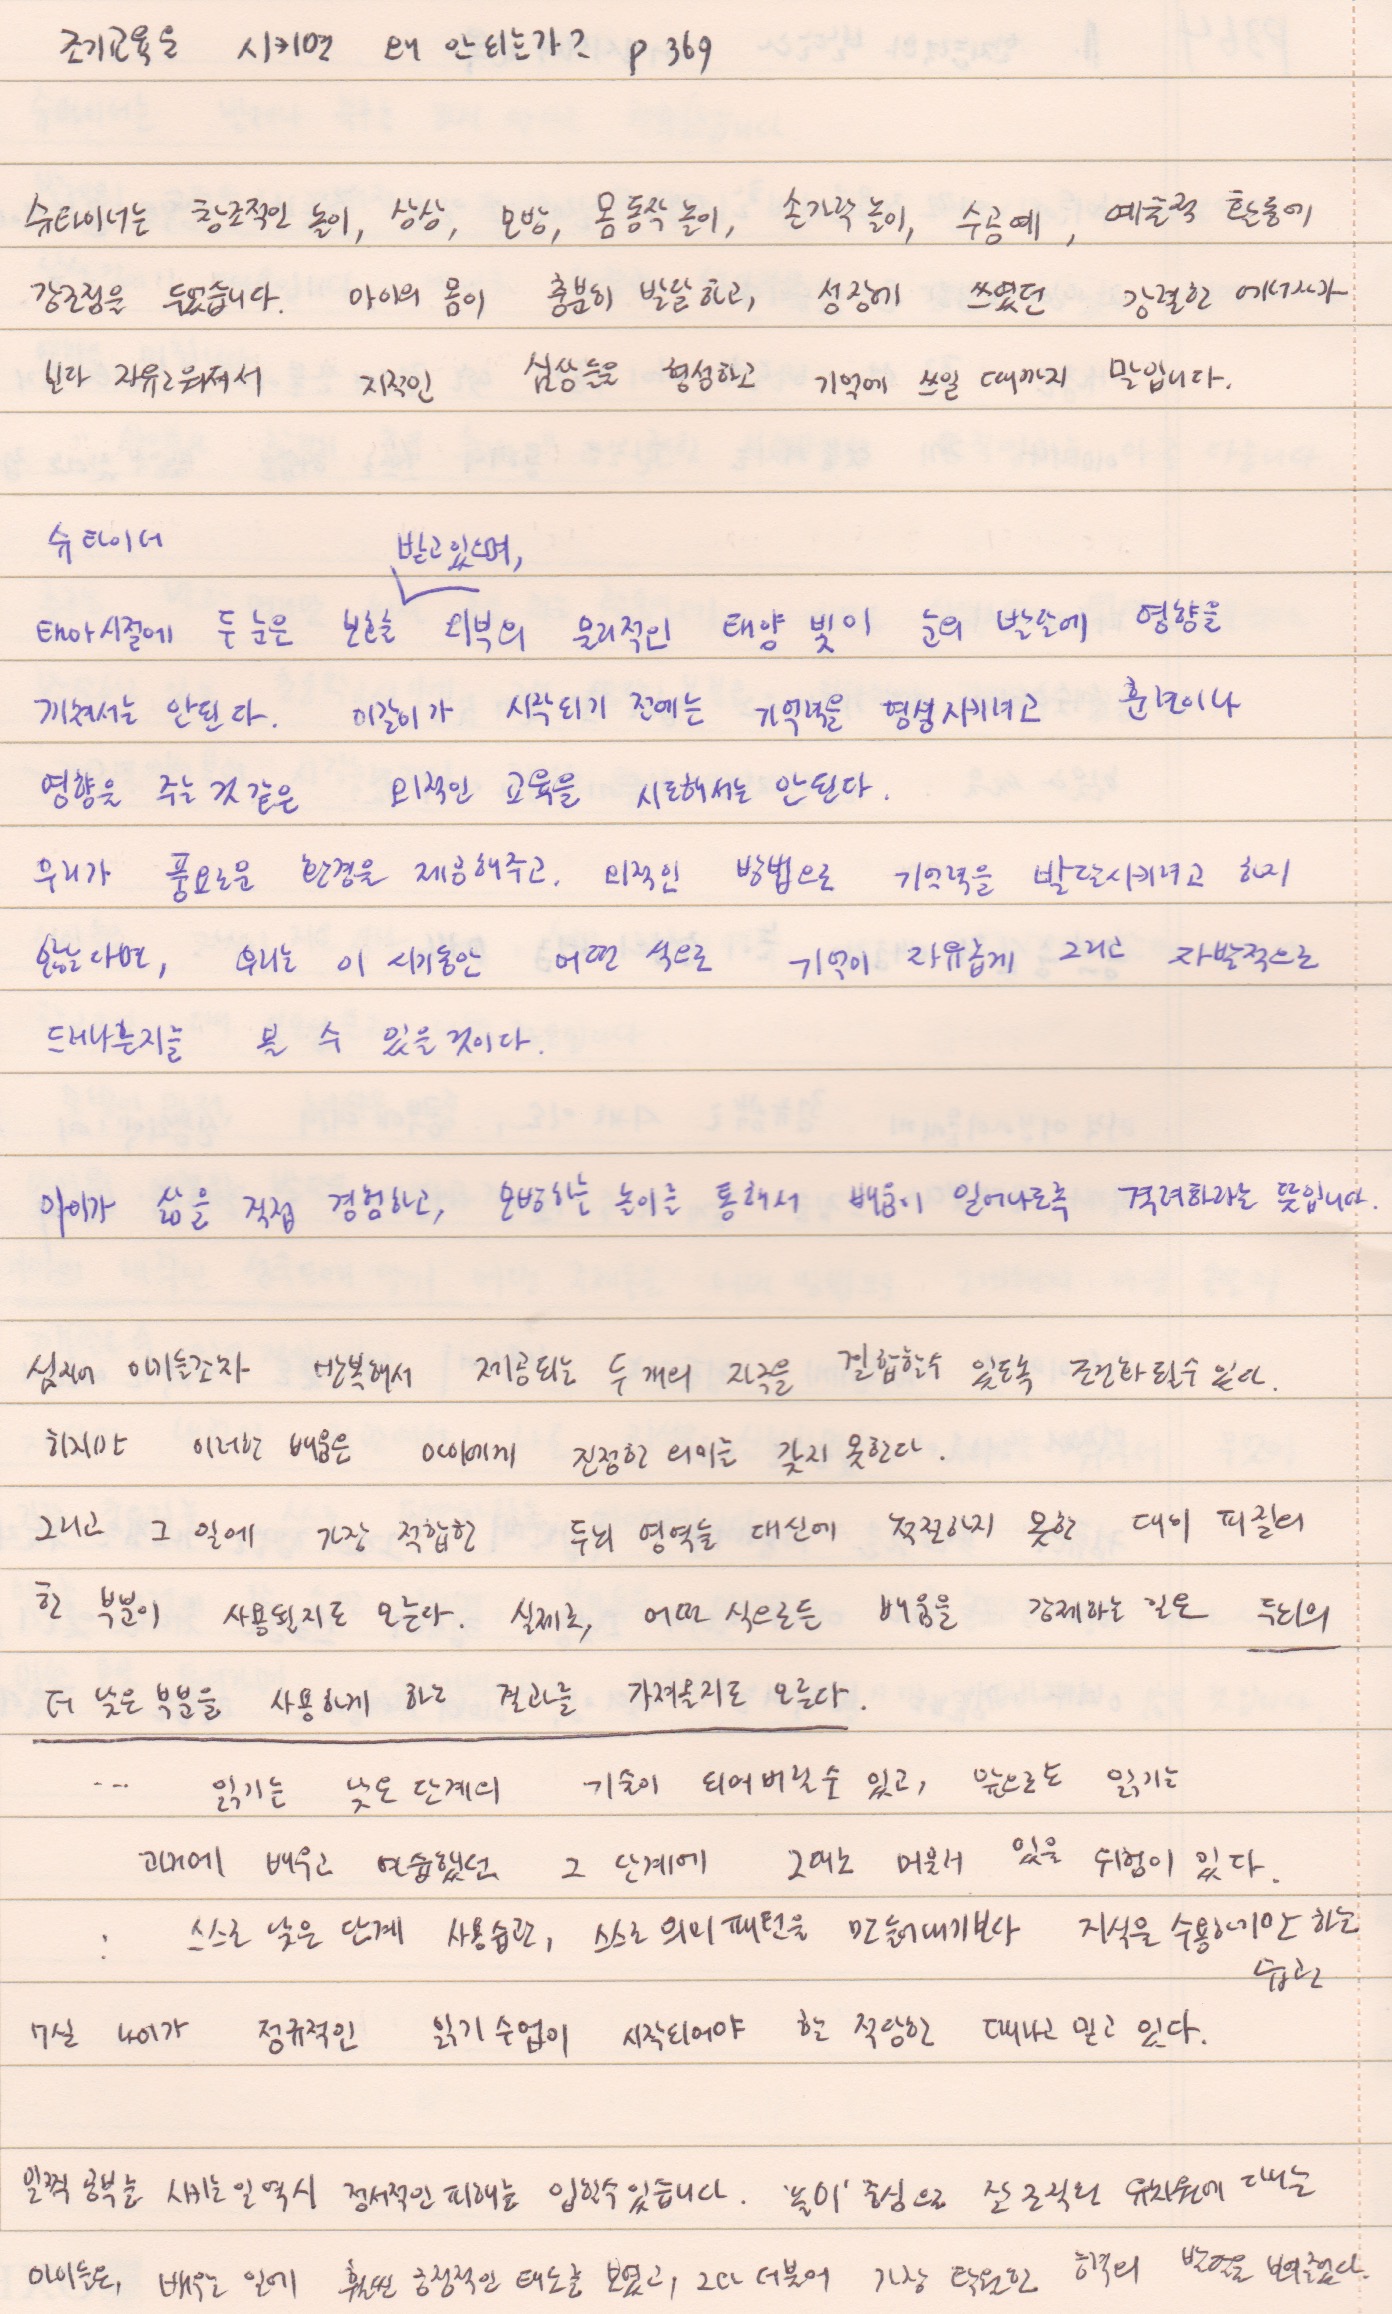 조기교육을 시키면 왜 안되는가? p 369
슈타이너는 창조적인 놀이, 상상, 모방, 몸동작 놀이, 손가락 놀이, 수공예, 예술적 활동에
강조점을 두었습니다. 아이의 몸이 충분히 발달하고, 성장에 쓰였던 강렬한 에너지가
보다 자유로워져서 지적인 심상들을 형성하고 기억에 쓰일 때까지 말입니다.
슈타이너
받고있으며,
태아시절에 두 눈은 보호를 외부의 물리적인 태양 빛이 눈의 발달에 영향을
끼쳐서는 안된다. 이갈이가 시작되기 전에는 기억력을 형성시키려고 훈련이나
영향을 주는 것 같은 외적인 교육을 시도해서는 안된다.
우리가 풍요로운 환경을 제공해주고. 외적인 방법으로 기억력을 발달시키려고 하지
않는다면, 우리는 이 시기동안 어떤 식으로 기억이 자유롭게 그리고 자발적으로
드러나는지를 볼 수 있을것이다.
아이가 삶을 직접 경험하고, 모방하는 놀이를 통해서 배움이 일어나도록 격려하라는 뜻입니다.
심지어 아기들조차 반복해서 제공되는 두 개의 자극을 결합할수 있도록 조건화 될수있다.
하지만 이러한 배움은 아이에게 진정한 의미를 갖지 못한다.
그리고 그 일에 가장 적합한 두뇌 영역들 대신에 적절하지 못한 대뇌 피질의
한 부분이 사용될지도 모른다. 실제로, 어떤 식으로든 배움을 강제하는 일은 두뇌의
더 낮은 부분을 사용하게 하는 결과를 가져올지도 모른다.
... 읽기는 낮은 단계의 기술이 되어버릴 수 있고, 앞으로도 읽기는
과거에 배우고 연습했던 그 단계에 그대로 머물러 있을 위험이 있다.
: 스스로 낮은 단계 사용습관, 스스로 의미 패턴을 만들어내기보다 지식을 수용하기만 하는
습관
7살 나이가 정규적인 읽기 수업이 시작되어야 할 적당한 때라고 믿고 있다.
일찍 공부를 시키는 일 역시 정서적인 피해를 입힐수 있습니다. '놀이' 중심으로 잘 조직된 유치원에 다니는
아이들은, 배우는 일에 훨씬 긍정적인 태도를 보였고, 그와 더불어 가장 탁월한 학력의 발달을 보여줬다.